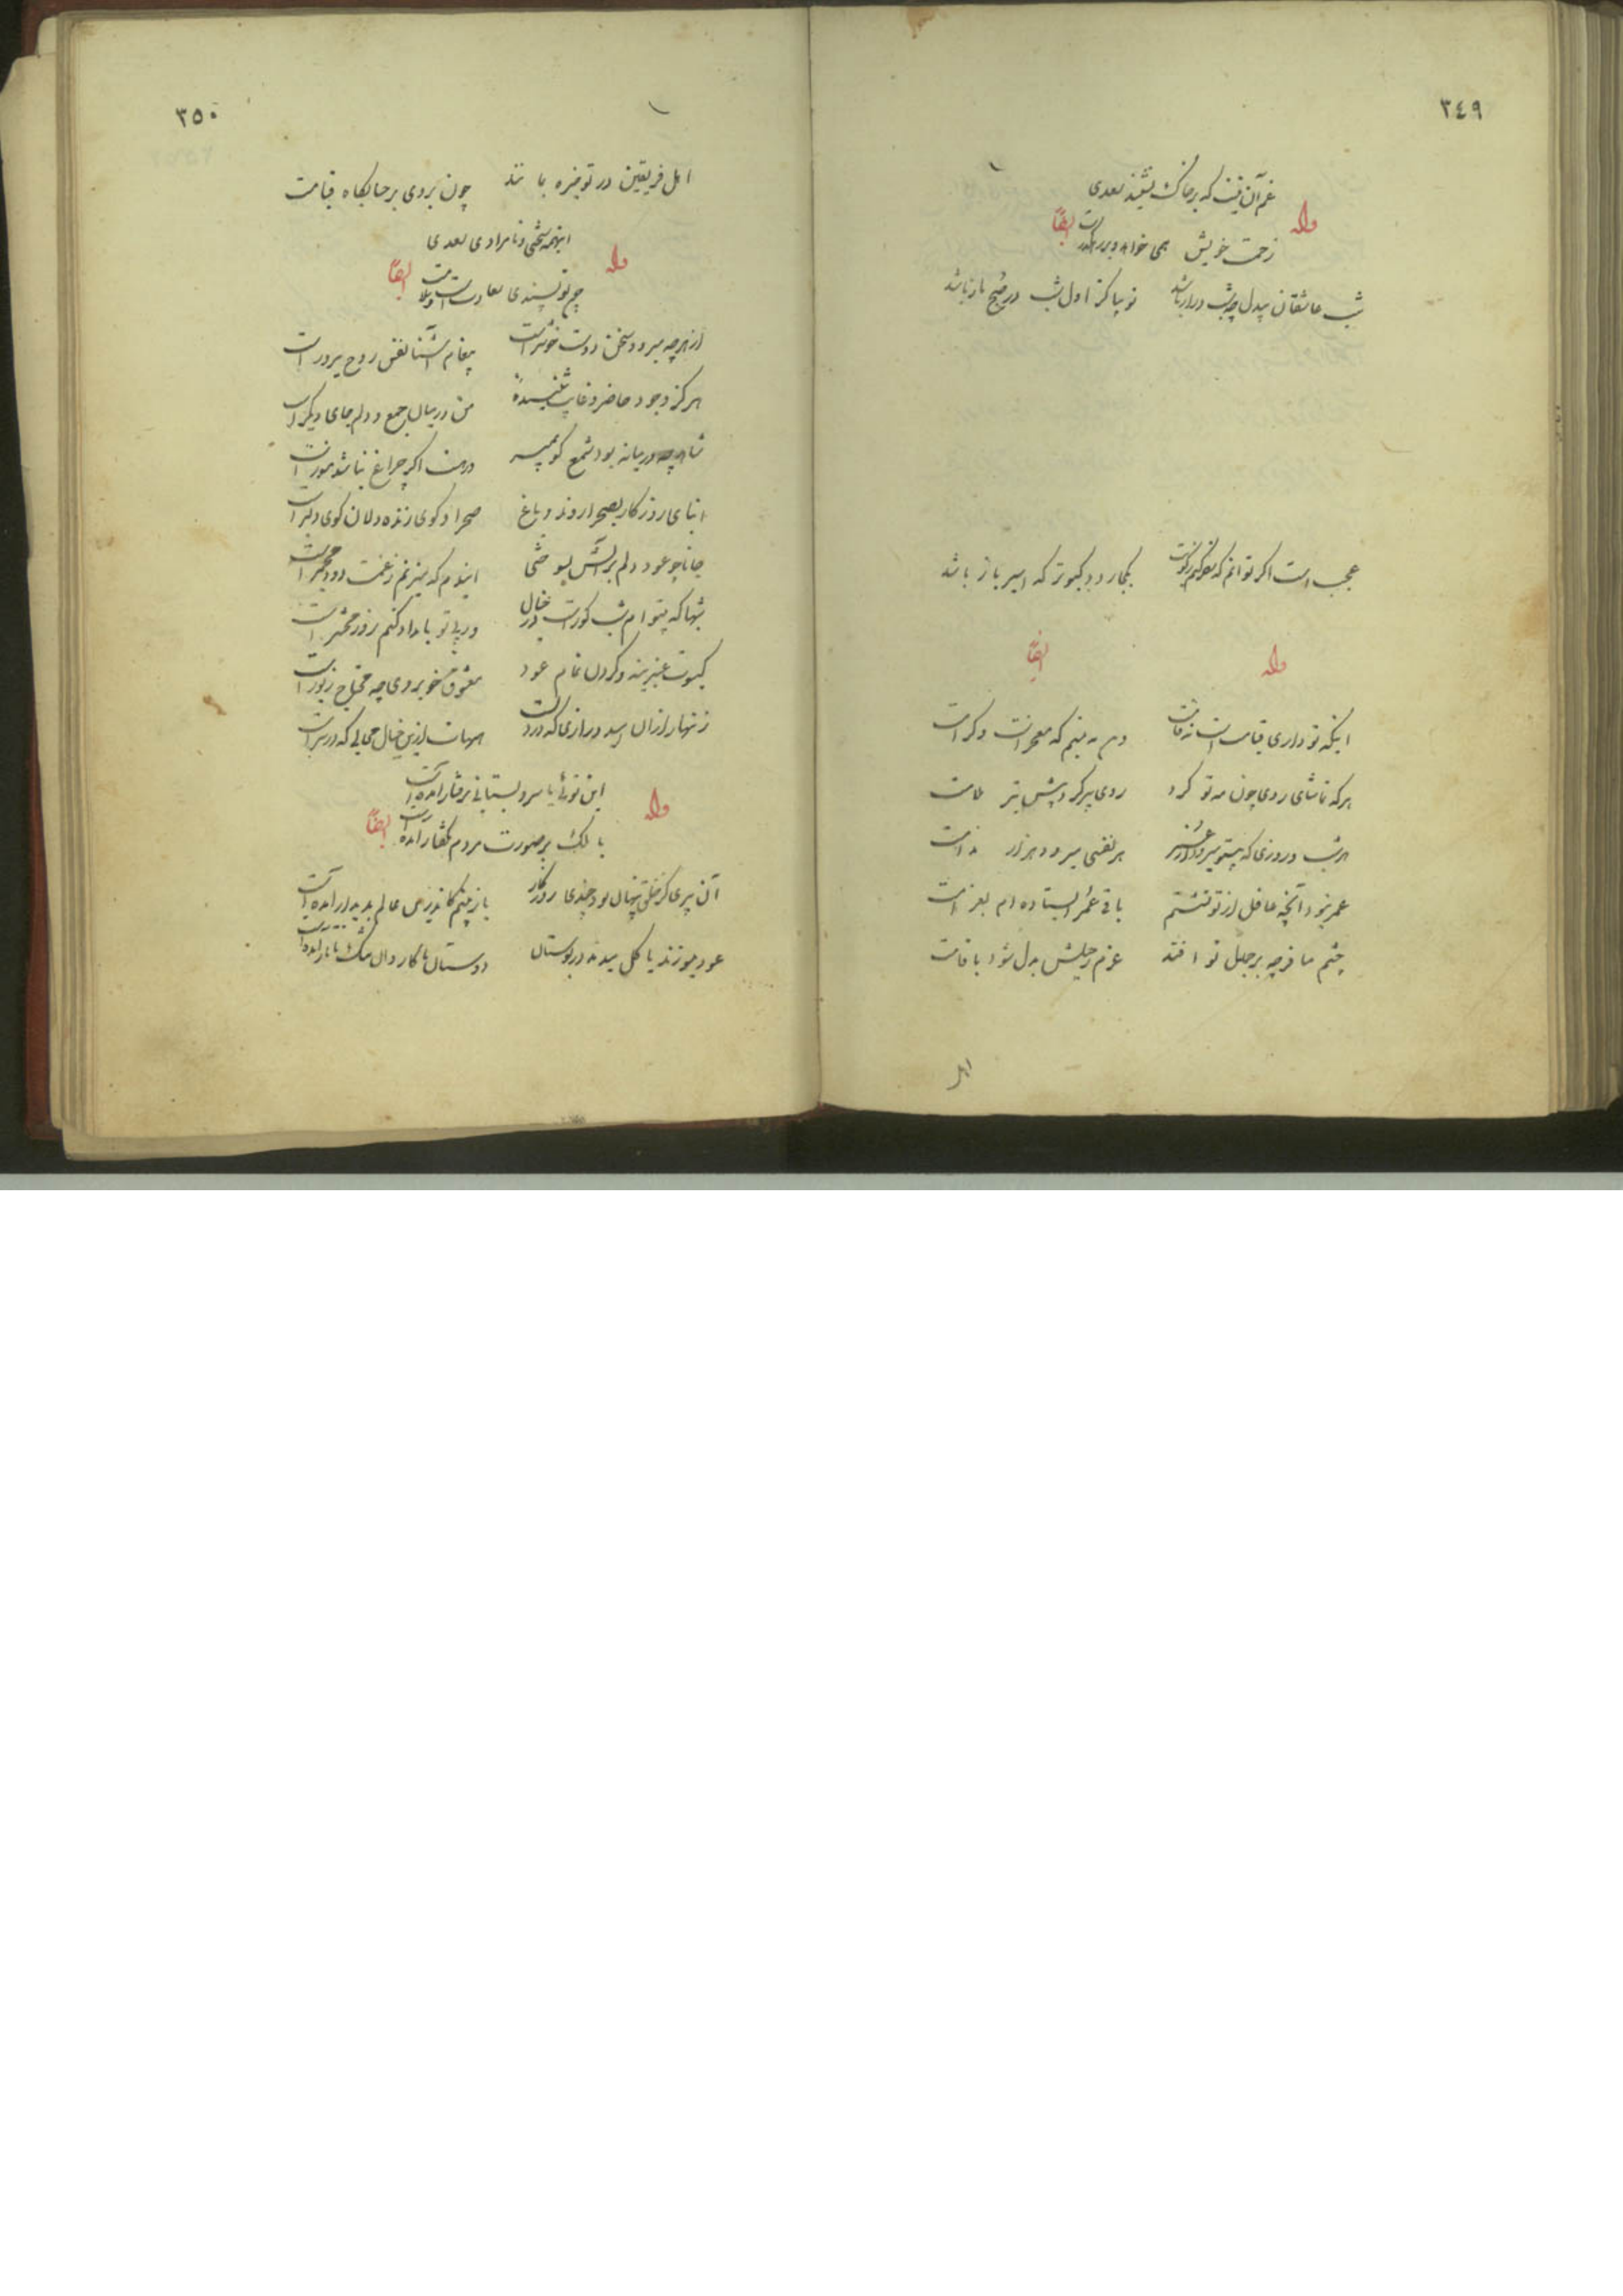 ٣٤٩
غم آن نیست که بر خاک نشیند سعدی
وله
ایضاً
زحمت خویش نمی خواهد بر رهگذرت
شب عاشقان بیدل چه شب دراز باشد تو بیا کز اول شب در صبح باز باشد
عجب است اگر توانم که سفر کنم ز کویت بکجا رود کبوتر که اسیر باز باشد
وله ایضاً
اینکه تو داری قیامت است نه قامت وین نه تبسم که معجز است و کرامت
هر که تماشای روی چون مه تو کرد روی سپر کرد پیش تیر ملامت
هر شب و روزی که بیتو میرود از عمر هر نفسی میرود هزار ندامت
عمر نبود آنچه غافل از تو نشستم باقی عمر ایستاده ام بغرامت
چشم مسافر چه بر جمال تو افتد عزم رحیلش بدل شود باقامت
اهل
٣٥٠
اهل فریقین در تو خیره بمانند چون بروی بر حسابگاه قیامت
اینهمه سختی و نامرادی سعدی
وله
ایضاً
چو تو پسندی سعادت است و سلامت
از هرچه میرود سخن دوست خوشتر است پیغام آشنا نفس روح پرور است
هرگز وجود حاضر و غایب شنیدهٔ من در میان جمع و دلم جای دیگر است
شاهد چه در میانه بود شمع گو بمیر ور هست اگر چراغ نباشد منور است
ابنای روزگار بصحرا روند و باغ صحرا و کوی زنده دلان کوی دلبر است
جانا چو عود دلم بر آتش بسوختی ایندم که میزنم ز غمت دود مجمر است
شبها که بیتوام شب گور است در خیال ور بی تو بامداد کنم روز محشر است
گیسوت عنبرینه و گردن تمام عود معشوق خوبروی چه محتاج زیور است
زنهار از ان امید درازی که در دل است هیهات ازین خیال محالی که در سر است
این توئی یا سرو بستانی برفتار آمده است
وله
ایضاً
یا ملک بر صورت مردم بگفتار آمده است
آن پری کز خلق پنهان بود چندی روزگار باز میبینم که اندر عالم پدیدار آمده است
عود میسوزند یا گل میدمد در بوستان دوستان یا کاروان مشک تاتار آمده است